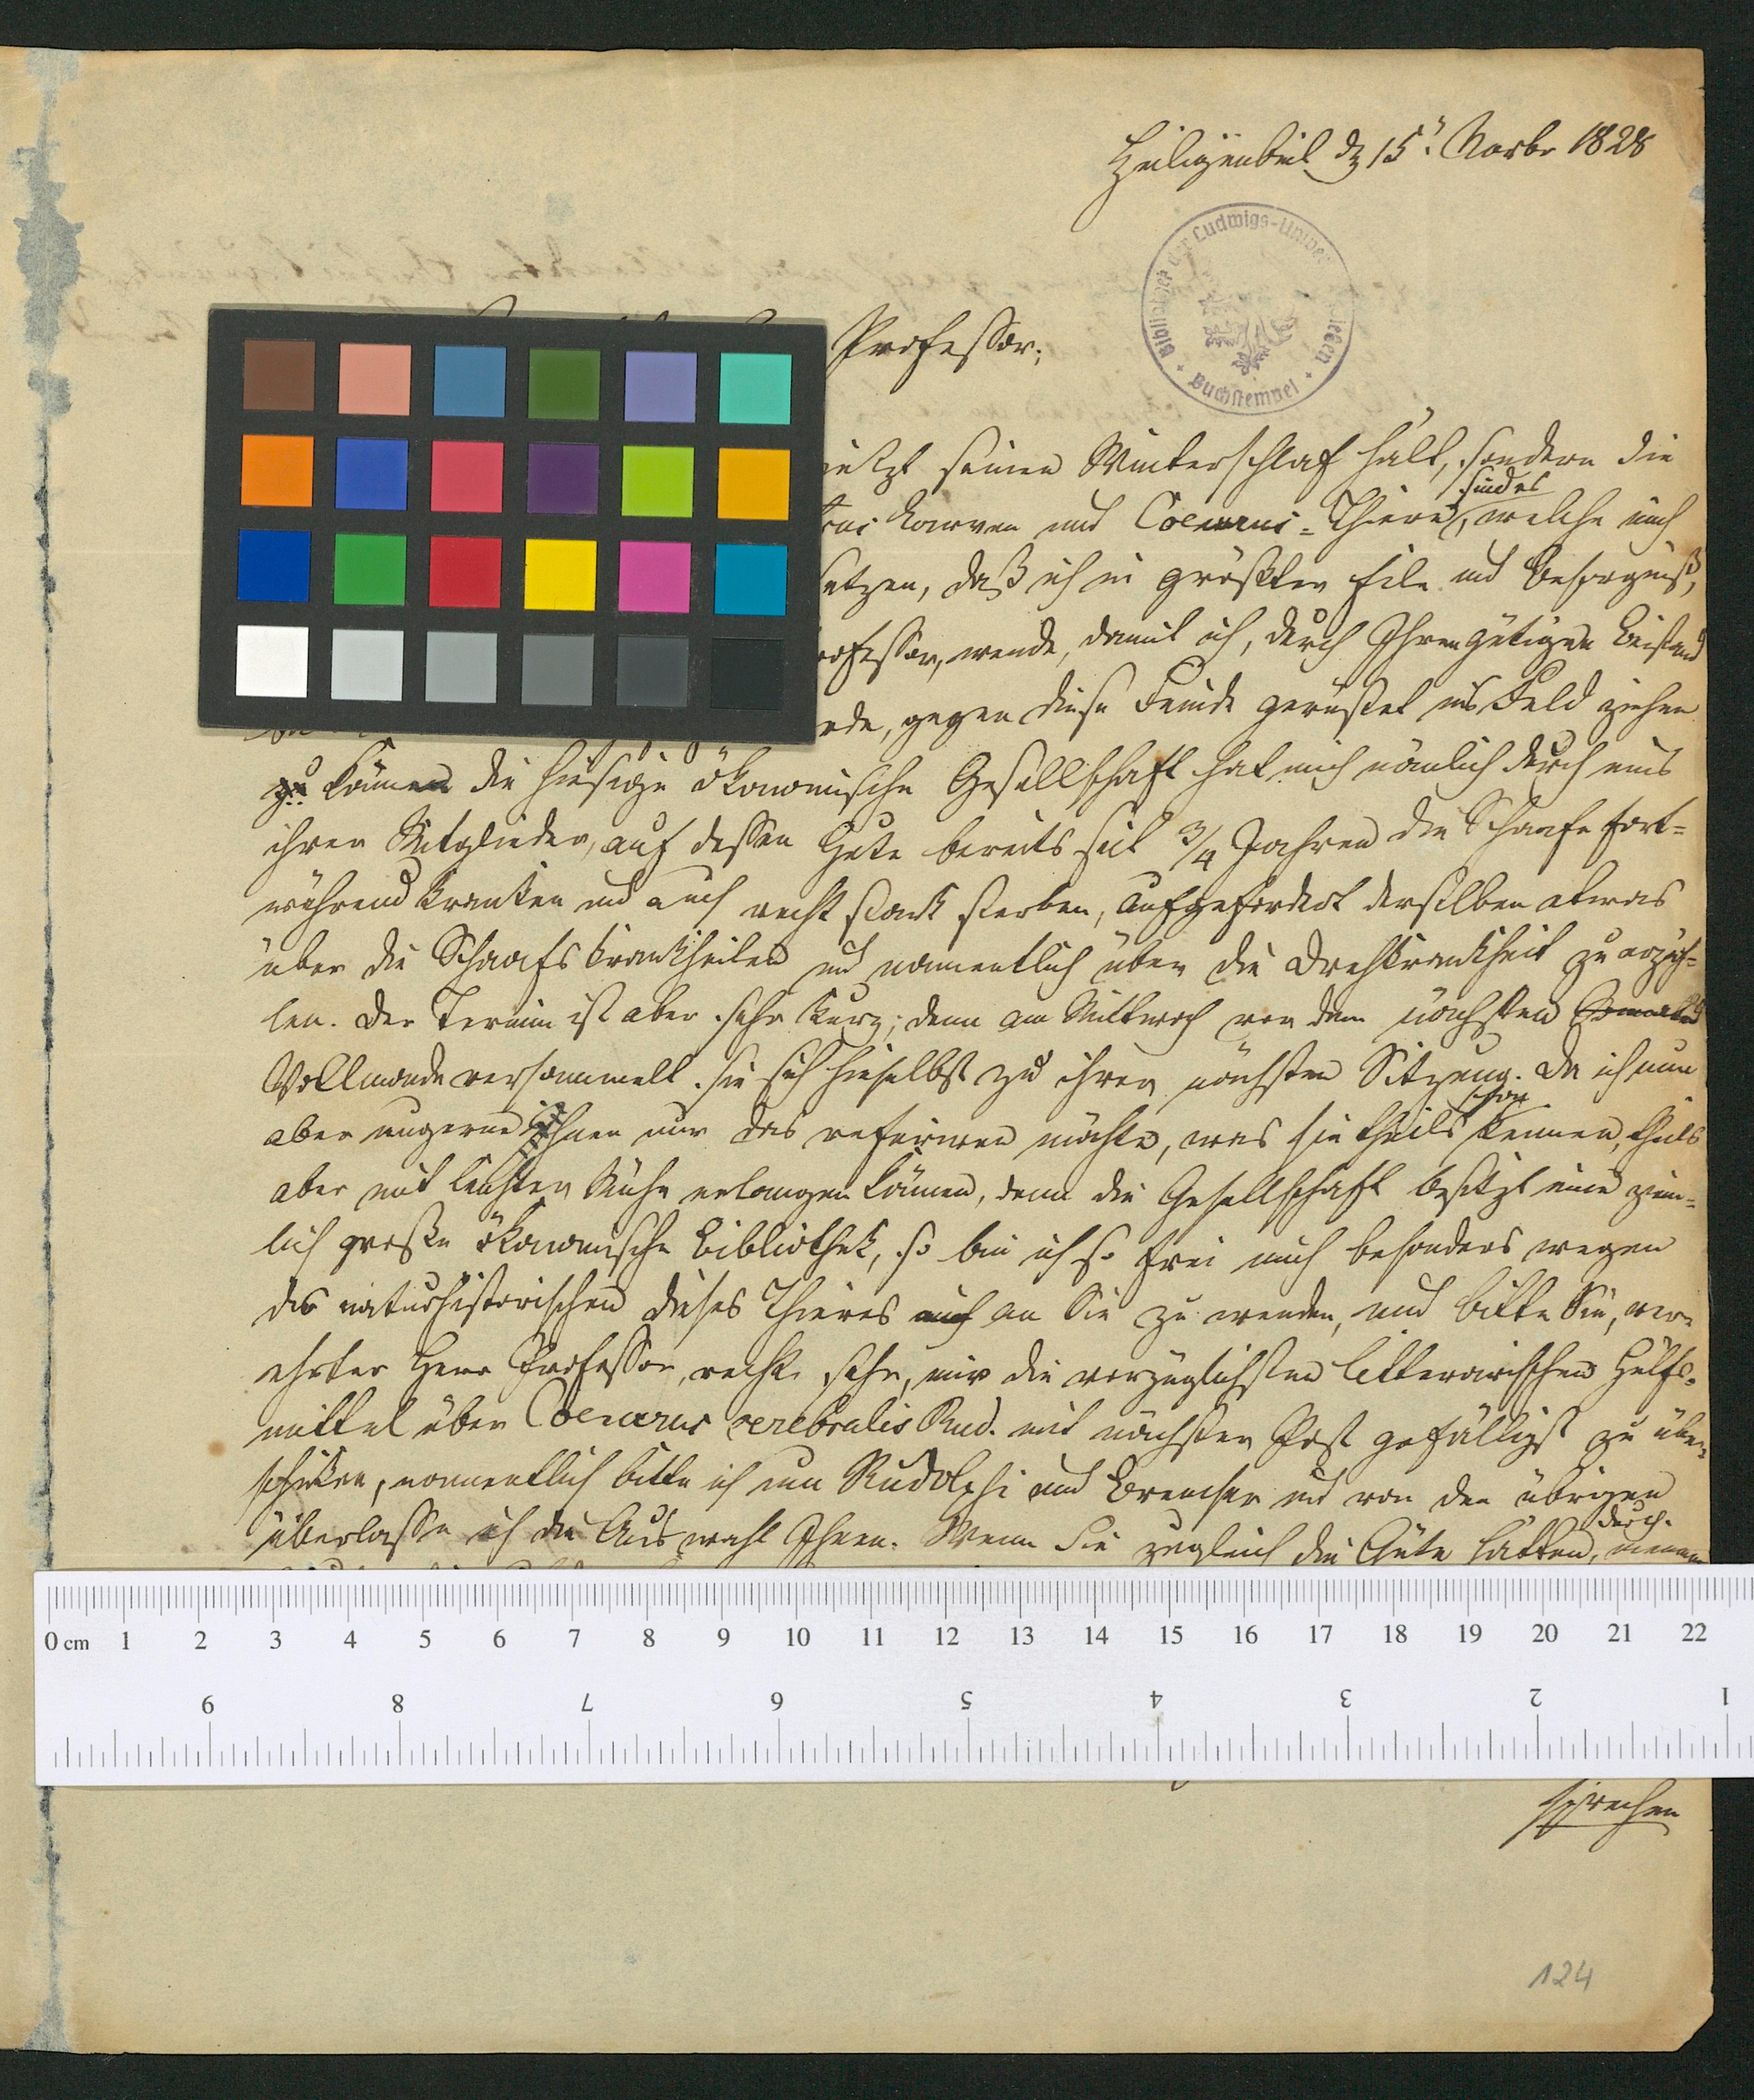 Heiligenbeil d 15t Novbr 1828
Bibliothek der Ludwigs-Univer Gießen
Buchstempel
Professor;
jetzt seinen Winterschlaf hält, sondern die
sind es
Larven und Coenurus-Thiere, welche mich
setzen, daß ich in größter Eile und Besorgniß,
rofessor, wende, damit ich, durch Ihren gütigen Beistand
rde, gegen diese Feinde gerüstet ins Feld ziehen
zu können die hiesige ökonomische Gesellschaft hat mich nämlich durch eins
ihrer Mitglieder, auf dessen Gute bereits seit 3/4 Jahren die Schaafe fort=
während kranken und auch recht stark sterben, aufgefordert derselben etwas
über die Schaafskrankheiten und namentlich über die Drehkrankheit zu erzäh=
len. Der Termin ist aber sehr kurz; denn am Mittwoch vor dem nächsten
Vollmonde versammelt sie sich hieselbst zu ihrer nächsten Sitzung. Da ich nun
schon
aber ungerne ihnen nur das referiren möchte, was sie theils kennen, theils
aber mit leichter Mühe erlangen können, denn die Gesellschaft besitzt eine ziem=
lich große ökonomische Bibliothek, so bin ich so frei mich besonders wegen
des naturhistorischen dieses Thieres an Sie zu wenden, und bitte Sie, ver=
ehrter Herr Professor, recht sehr, mir die vorzüglichsten litterarischen Hülfs=
mittel über Coenurus cerebralis Rud. mit nächster Post gefälligst zu über=
schicken, namentlich bitte ich um Rudolphi und Bremser und von den übrigen
durch
überlasse ich die Auswahl Ihnen. Wenn Sie zugleich die Güte hätten, meinen
0 cm 1 2 3 4 5 6 7 8 9 10 11 12 13 14 15 16 17 18 19 20 21 22
9 8 7 6 5 4 3 2 1
sprechen
124